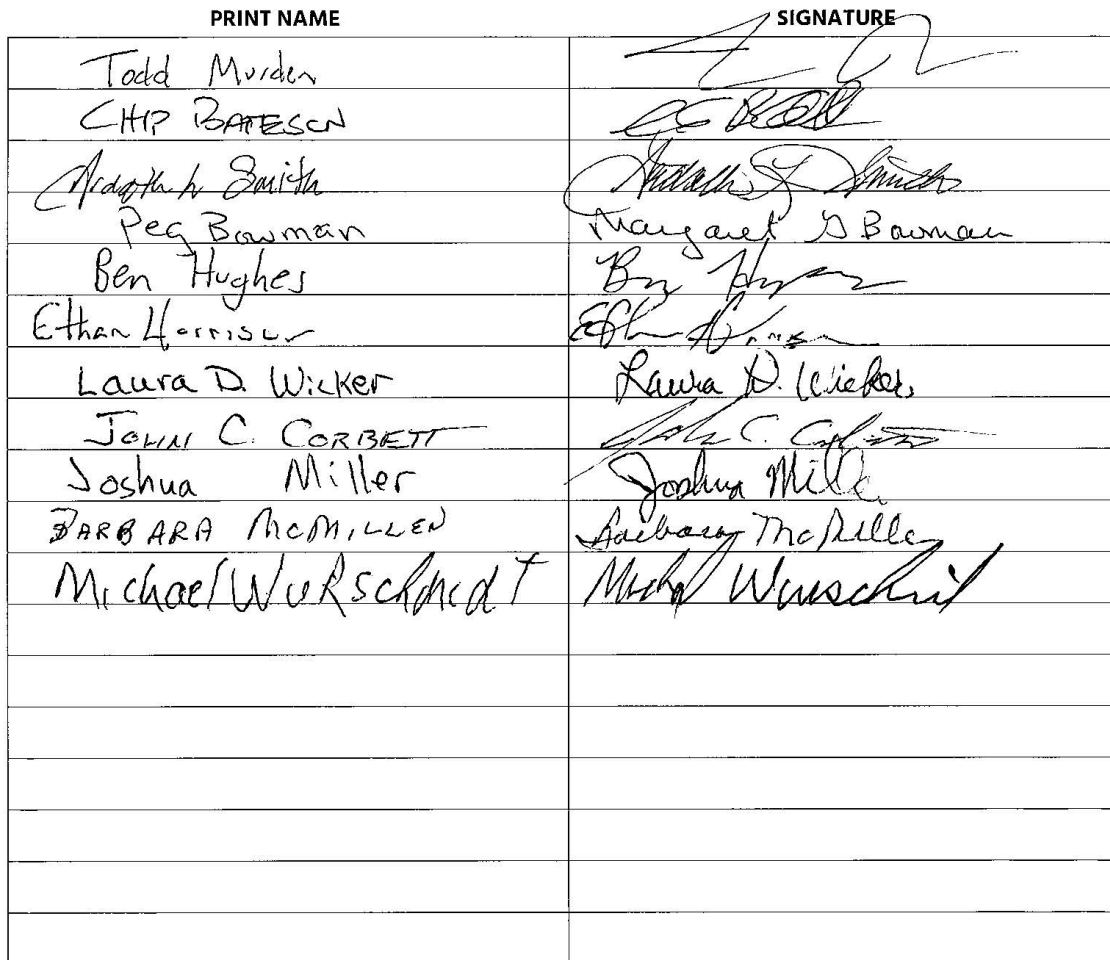 PRINT NAME SIGNATURE
Todd Murden
CHIP BATESON
Smith Smith
Peg Bowman Margaret G Bowman
Ben Hughes Ben
Ethan Harrison Ethan
Laura D. Wicker Laura D. Wicker
JOHN C. CORBETT John C.
Joshua Miller Joshua Miller
BARBARA MCMILLEN Barbara McMillen
Michael Wurschmidt Michael Wurschmidt